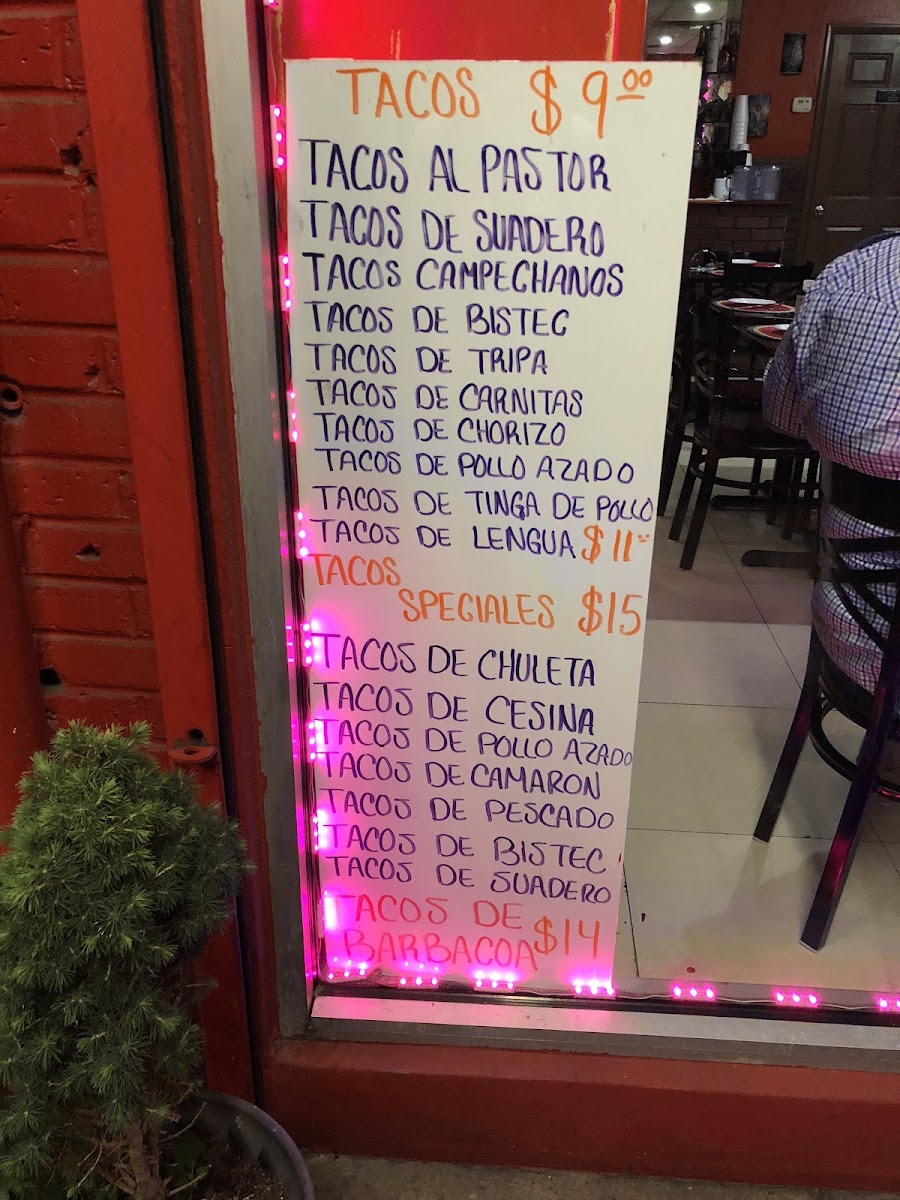 TACOS $9.00
TACOS AL PASTOR
TACOS DE SUADERO
TACOS CAMPECHANOS
TACOS DE BISTEC
TACOS DE TRIPA
TACOS DE CARNITAS
TACOS DE CHORIZO
TACOS DE POLLO AZADO
TACOS DE TINGA DE POLLO
TACOS DE LENGUA $11.00
TACOS
SPECIALES $15
TACOS DE CHULETA
TACOS DE CESINA
TACOS DE POLLO AZADO
TACOS DE CAMARON
TACOS DE PESCADO
TACOS DE BISTEC
TACOS DE SUADERO
TACOS DE
BARBACOA $14